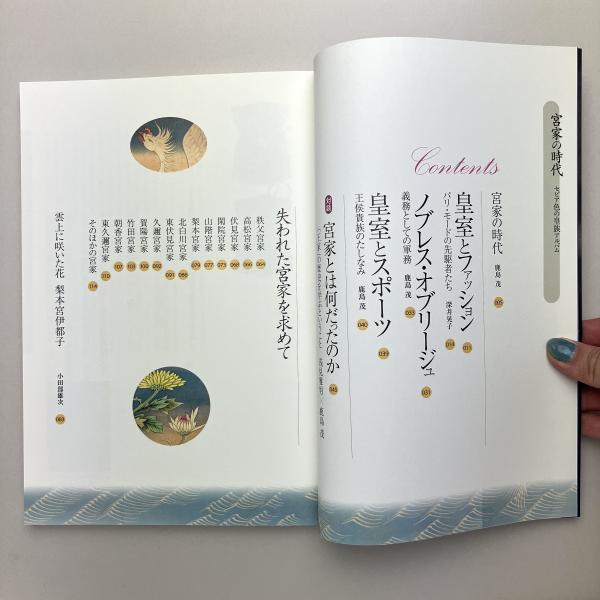 宮家の時代
セピア色の皇族アルバム
Contents
宮家の時代 鹿島 茂 005
皇室とファッション 011
パリ・モードの先駆者たち 深井晃子 014
ノブレス・オブリージュ 031
義務としての軍務 鹿島 茂 033
皇室とスポーツ 039
王侯貴族のたしなみ 鹿島 茂 040
対談 宮家とは何だったのか 045
鹿島 茂
失われた宮家を求めて
秩父宮家 064
高松宮家
伏見宮家
閑院宮家
山階宮家
梨本宮家
北白川宮家
東伏見宮家 091
久邇宮家
賀陽宮家
竹田宮家
朝香宮家 107
東久邇宮家 110
そのほかの宮家 114
雲上に咲いた花 梨本宮伊都子 小田部雄次